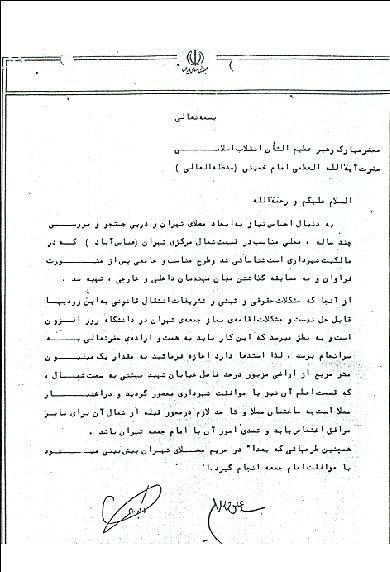 بسمه تعالی
محضر مبارک رهبر عظیم الشأن انقلاب اسلامی
حضرت آیةالله العظمی امام خمینی (مدظله العالی)
السلام علیکم و رحمةالله
به دنبال احساس نیاز به ابعاد مصلای تهران و درپی جستجو و بررسی
چند ساله ، محلی مناسب در قسمت شمال مرکزی تهران (عباس‌آباد) که در
مالکیت شهرداری است شناسائی شد و طرح مناسب و جامعی پس از مشورت
فراوان و به مسابقه گذاشتن میان مهندسان داخلی و خارجی ، تهیه شد .
از آنجا که مشکلات حقوقی و ثبتی و تشریفات انتقال قانونی به این زودیها
قابل حل نیست و مشکلات اقامه‌ی نماز جمعه‌ی تهران در دانشگاه روز افزون
است و به نظر میرسد که این کار باید به همت و اراده‌ی حضرتعالی به
سرانجام برسد ، لذا استدعا دارد اجازه فرمائید به مقدار یک میلیون
متر مربع از اراضی مزبور درحد فاصل خیابان شهید بهشتی به سمت شمال ،
که قسمت اعظم آن نیز با موافقت شهرداری محصور گردید و در اختیار
مصلا است به ساختمان مصلا و تا حد لازم درمحور قبله از شمال آن برای سایر
مرافق اختصاص یابد و تصدی امور آن با امام جمعه تهران باشد .
همچنین طرحهائی که بعدا" در حریم مصلای تهران پیش‌بینی میشود
با موافقت امام جمعه انجام گیرد.